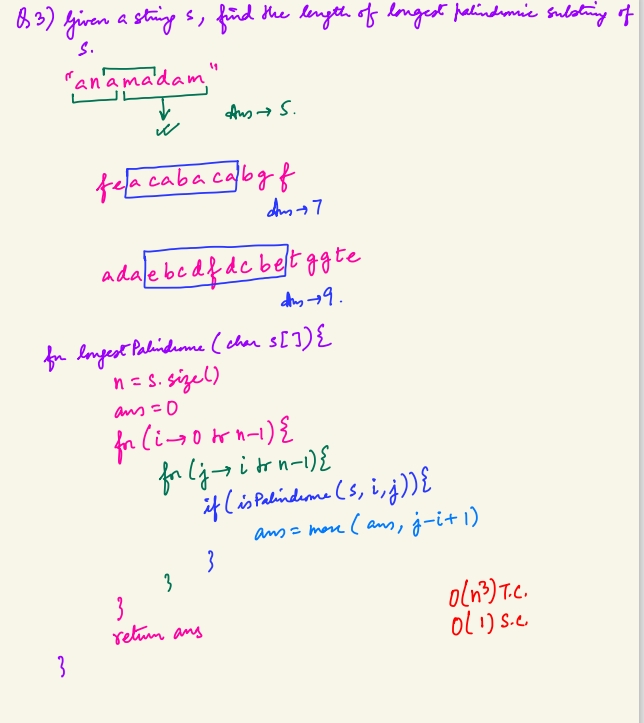 Q3) Given a string s, find the length of longest palindromic substring of
s.
"anamadam"
Ans → 5.
fe a caba ca b g f
Ans → 7
ada e b c d f d c b e t g g t e
Ans → 9.
fn longestPalindrome (char s[]){
n = s.size()
ans = 0
for (i → 0 to n-1){
for (j → i to n-1){
if (isPalindrome (s, i, j)){
ans = max (ans, j-i+1)
}
}
}
O(n³) T.C.
O(1) S.C.
return ans
}